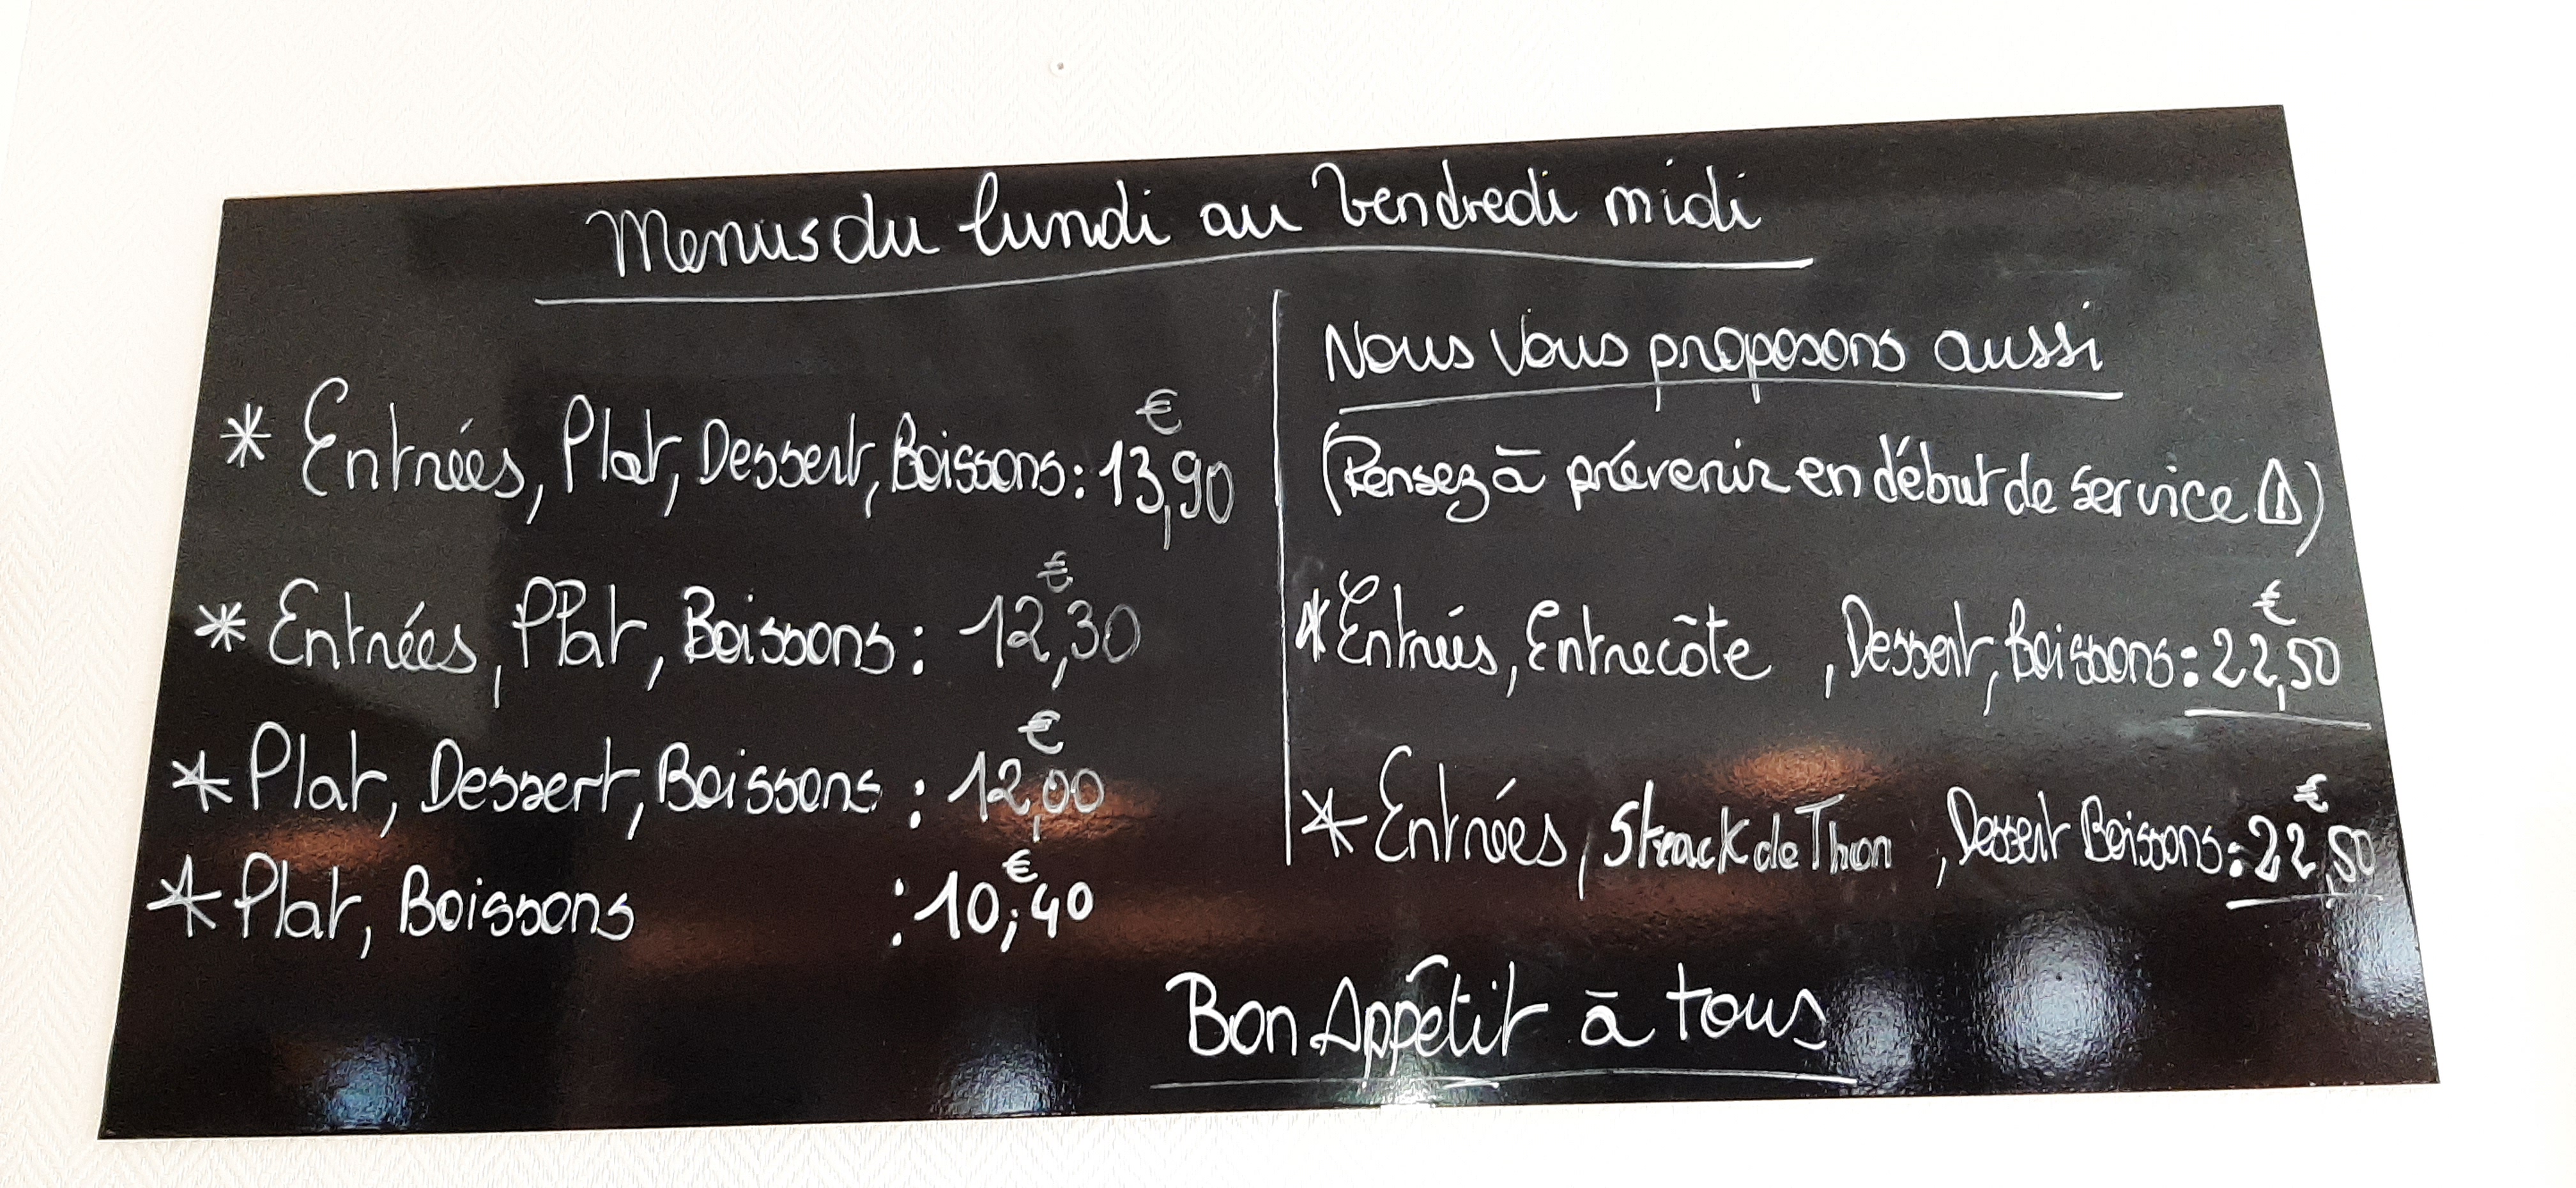 Menus du lundi au Vendredi midi
* Entrées, Plat, Dessert, Boissons : 13,90 €
* Entrées, Plat, Boissons : 12,30 €
* Plat, Dessert, Boissons : 12,00 €
* Plat, Boissons : 10,40 €
Nous Vous proposons aussi
(Pensez à prévenir en début de service ⚠)
* Entrées, Entrecôte , Dessert, Boissons : 22,50 €
* Entrées, Steack de Thon , Dessert Boissons : 22,50 €
Bon Appétit à tous